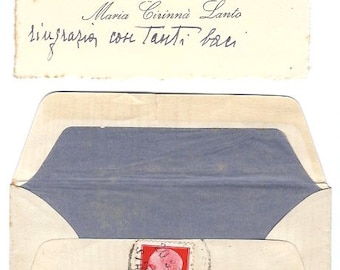 Maria Cirinnà Lanto
ringrazia con tanti baci